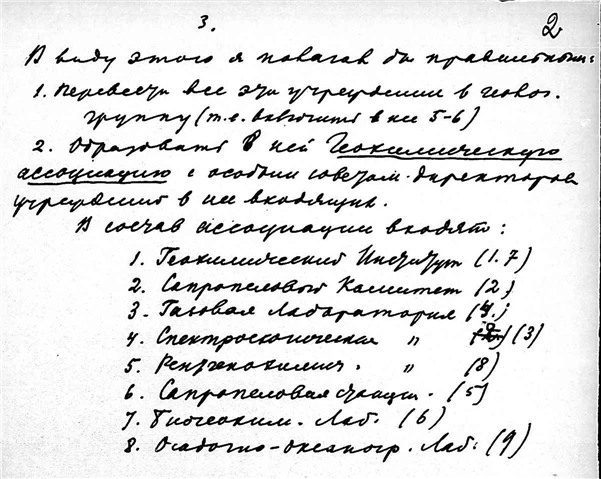 3.
2
В виду этого я полагал бы правильным:
1. Перевести все эти учреждения в геолог.
группу (т.е. включить в нее 5-6)
2. Образовать в ней Геохимическую
ассоциацию с особым советом директоров
учреждений в нее входящих.
В состав ассоциации входят:
1. Геохимический Институт (1.7)
2. Сапропелевый Комитет (2)
3. Газовая Лаборатория (4.)
4. Спектроскопическая " (3)
5. Рентгенохимич. " (8)
6. Сапропелевая станция. (5)
7. Биогеохим. Лаб. (6)
8. Осадочно-океаногр. Лаб. (9)